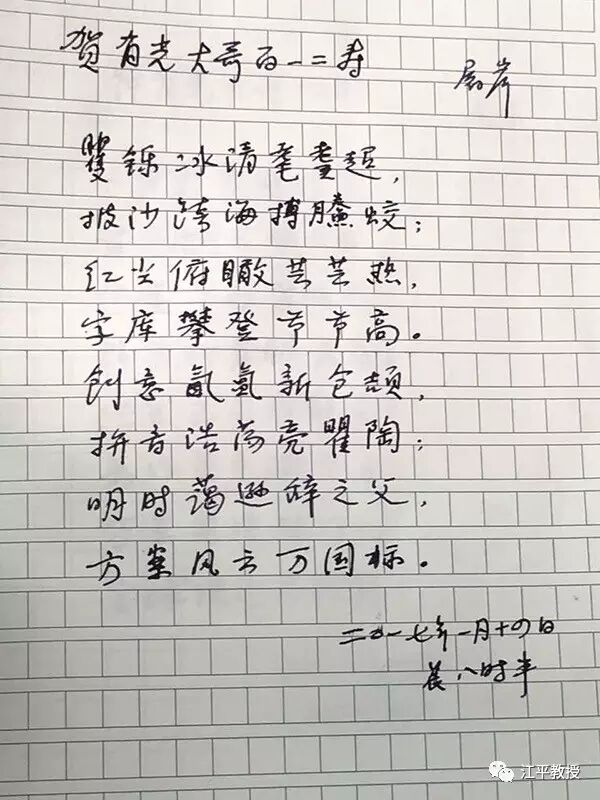 贺有光大哥百一二寿
矍铄冰清耄耋超，
披沙跨海搏腾蛟；
红尘俯瞰芸芸热，
字库攀登节节高。
创意氤氲新仓颉，
拼音浩荡亮瞿陶；
明时蔼逊辞之父，
方案风云万国标。
二〇一七年一月十四日
晨八时半
江平教授